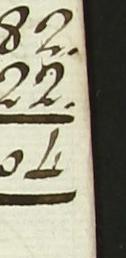 82.
22.
04